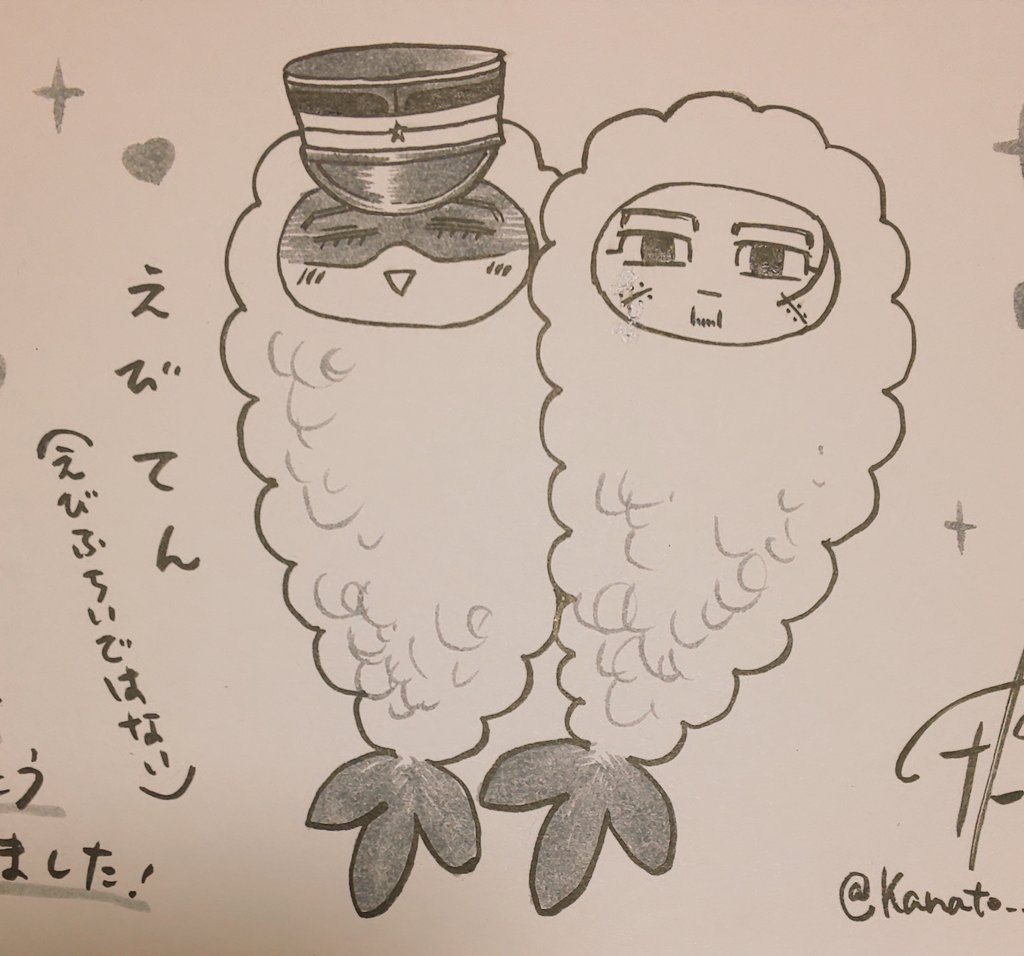 えびてん
(えびふらいではない)
う
ました!
@Kanato_